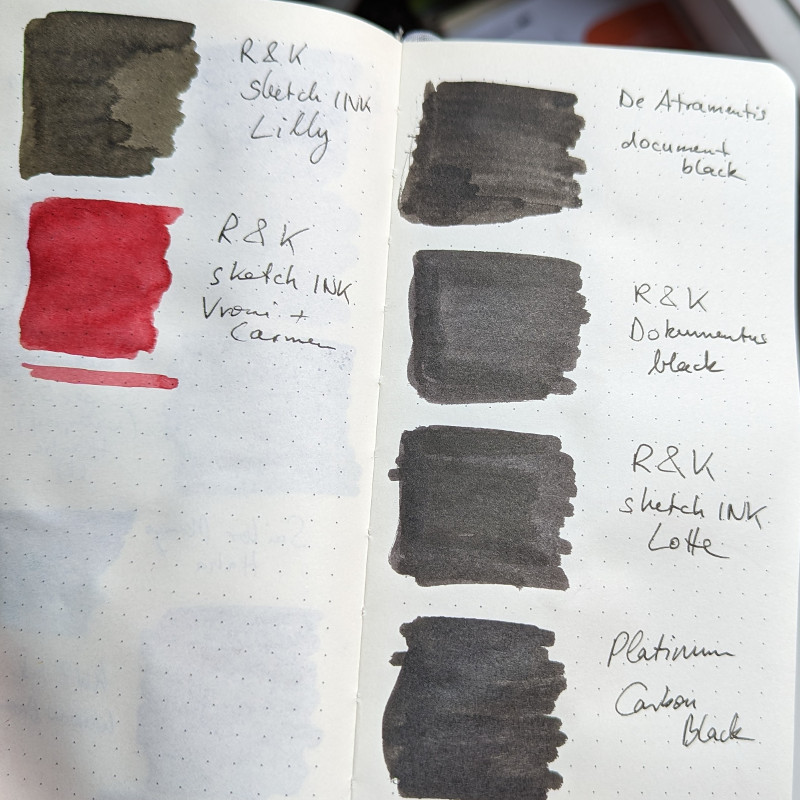 R & K
sketch INK
Lilly
R & K
sketch INK
Vroni +
Carmen
De Atramentis
document
black
R & K
Dokumentus
black
R & K
sketch INK
Lotte
Platinum
Carbon
Black